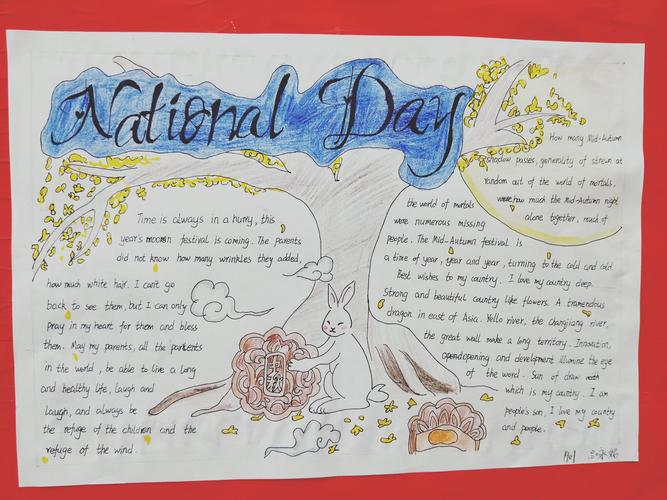 National Day
Time is always in a hurry, this
year's moon festival is coming. The parents
did not know how many wrinkles they added,
how much white hair. I can't go
back to see them, but I can only
pray in my heart for them and bless
them. May my parents, all the parents
in the world, be able to live a long
and healthy life, laugh and
laugh, and always be
the refuge of the children and the
refuge of the wind.
How many Mid-Autumn
shadow passes, generality of strewn at
random out of the world of mortals.
how much the Mid-Autumn night
alone together, much of
the world of mortals
were numerous missing
people. The Mid-Autumn festival is
a time of year, year and year, turning to the cold and cold.
Best wishes to my country. I love my country deep.
Strong and beautiful country like flowers. A tremendous
dragon in east of Asia. Yello river, the changjiang river,
the great wall make a long territory. Innovation,
opening and development illumine the eye
of the word. Sun of draw
which is my country. I am
people's son, I love my country
and people.